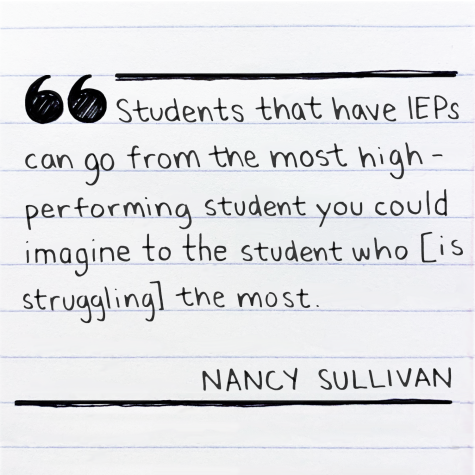 ❝Students that have IEPs
can go from the most high-
performing student you could
imagine to the student who [is
struggling] the most.
NANCY SULLIVAN